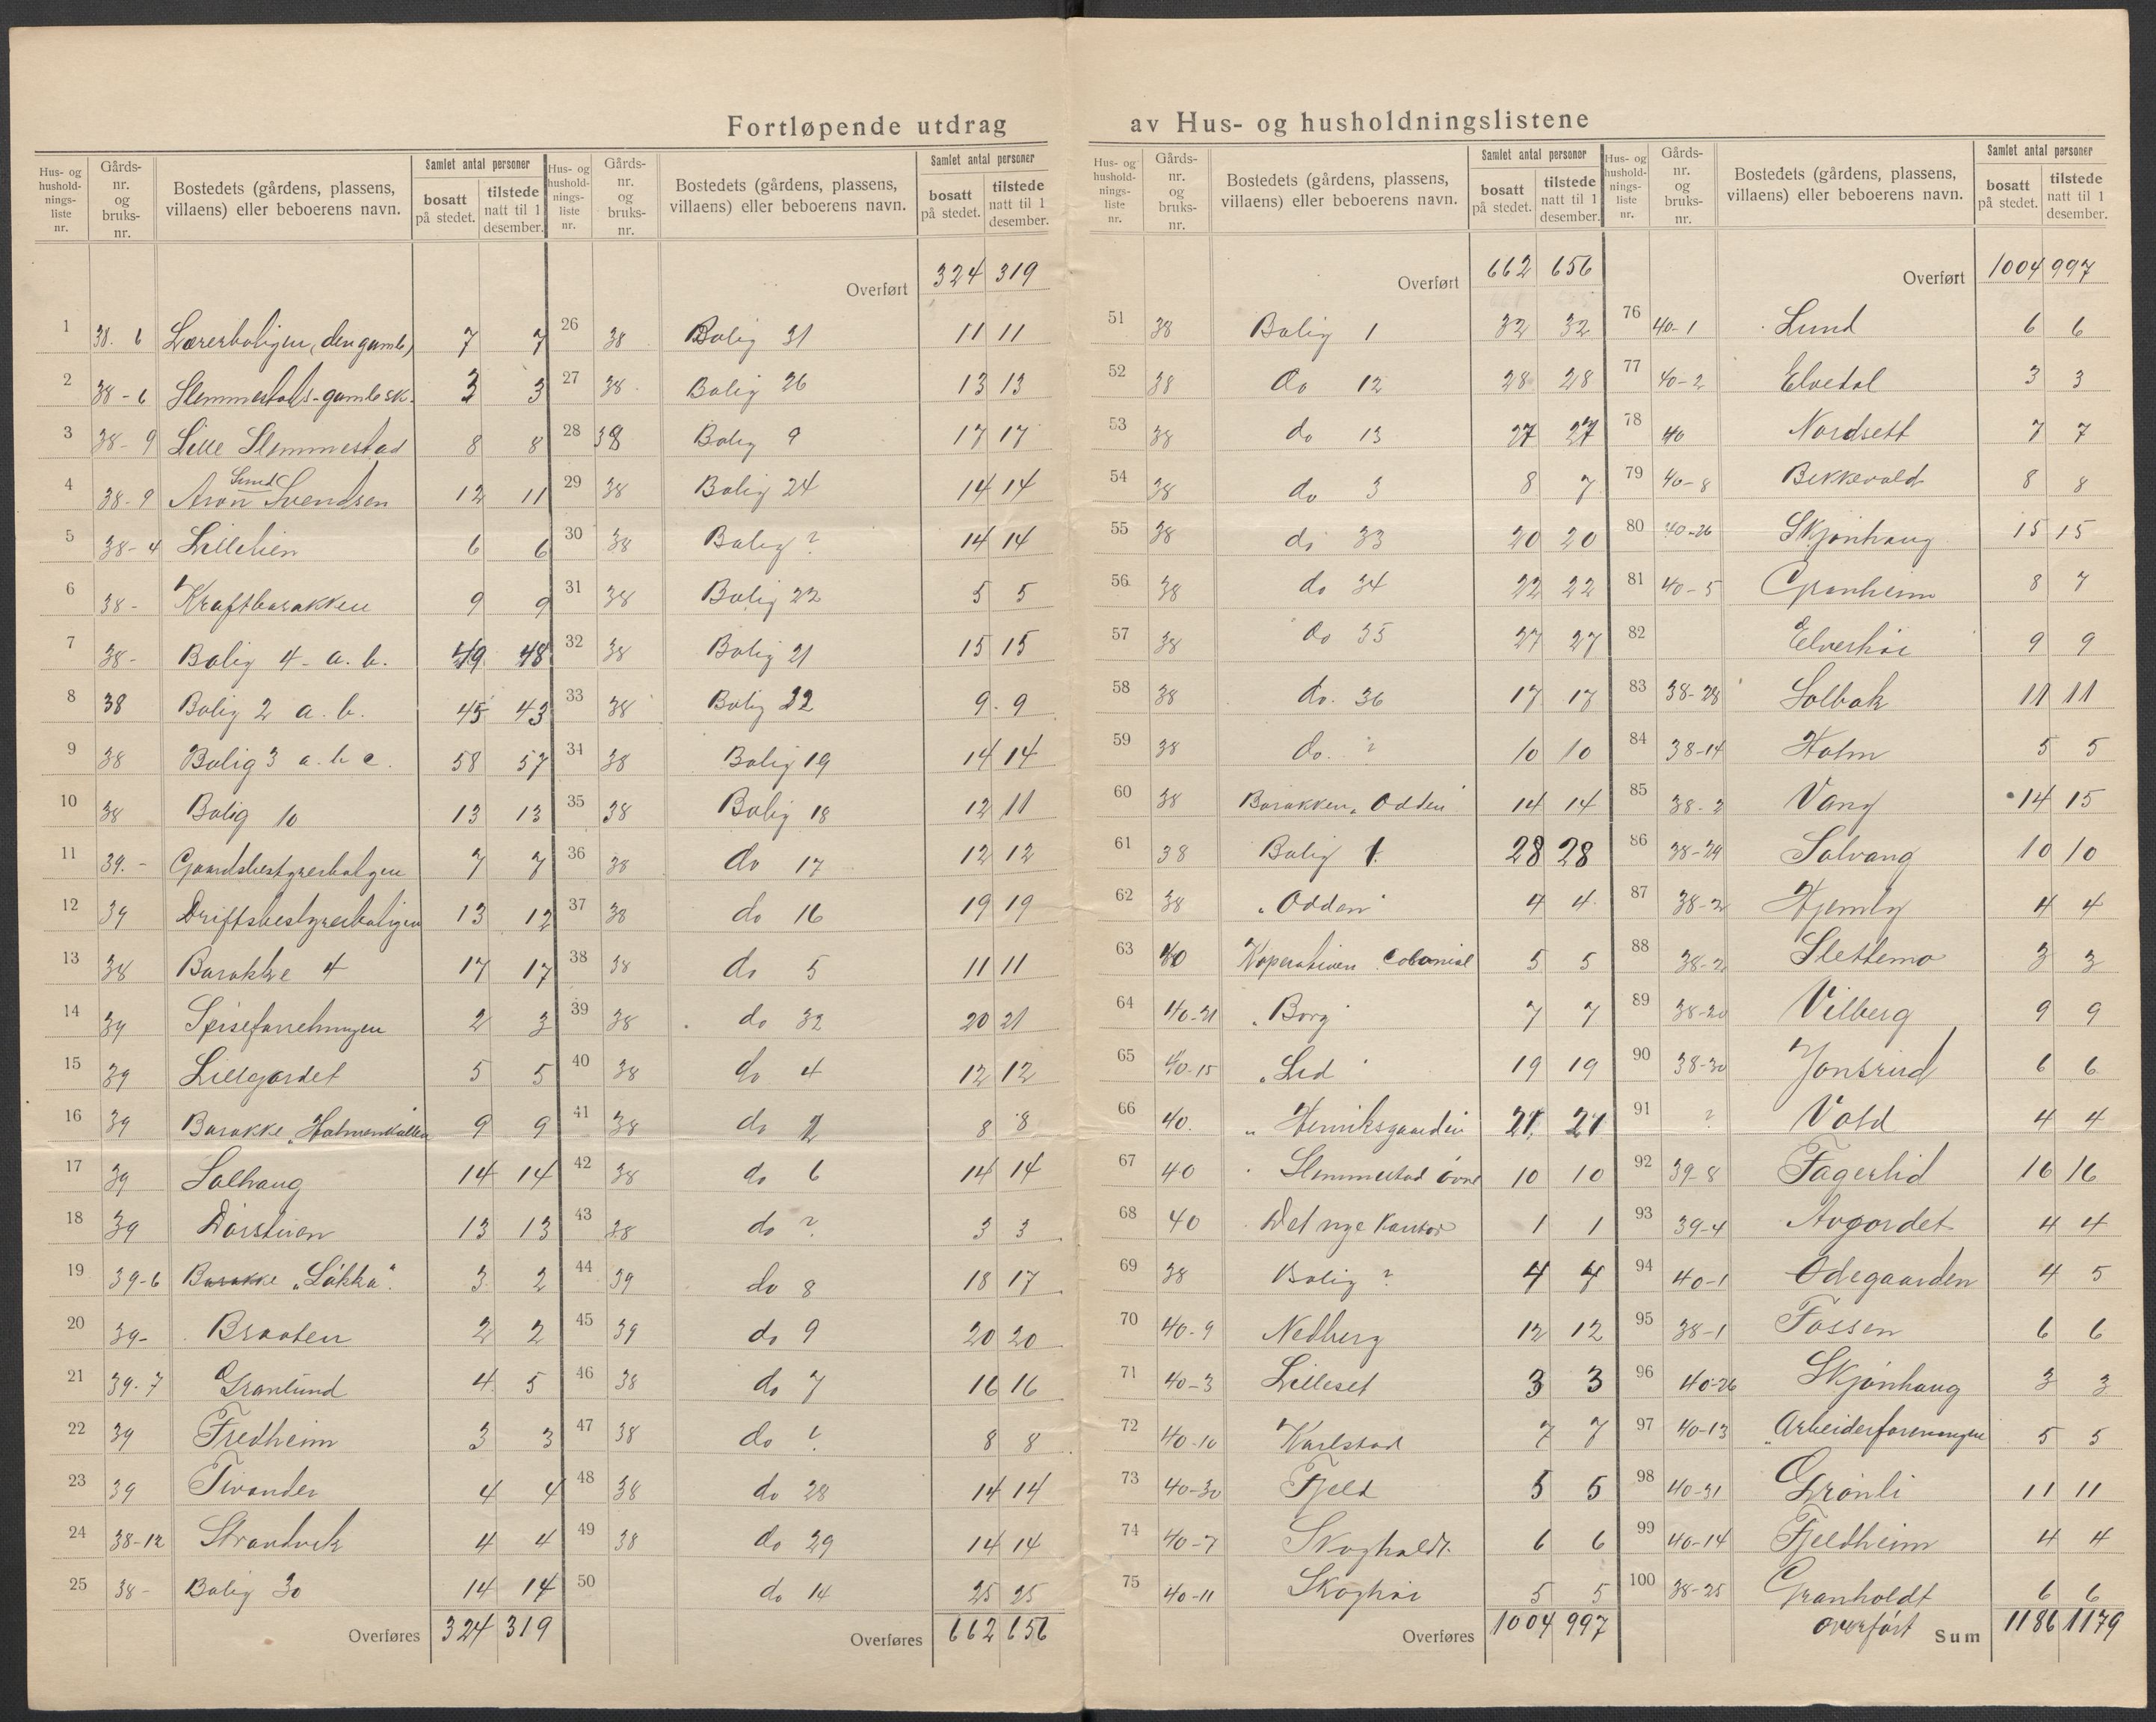 Fortløpende utdrag av Hus- og husholdningslistene
Hus- og husholdningsliste nr. | Gårdsnr. og bruksnr. | Bostedets (gårdens, plassens, villaens) eller beboerens navn. | Samlet antal personer | bosatt på stedet. | tilstede natt til 1 desember.
1 38. 6 Lærerboligen (den gamle) 7 7
2 38-6 Slemmestads-gamle sk. 3 3
3 38-9 Lille Slemmestad 8 8
4 38-9 Aron Lund Svendsen 12 11
5 38-4 Lillelien 6 6
6 38- Kraftbarakken 9 9
7 38- Bolig 4-a.b. 49 48
8 38 Bolig 2 a.b. 45 43
9 38 Bolig 3 a.b c. 58 57
10 38 Bolig 10 13 13
11 39.- Gaardsbestyrerboligen 7 7
12 39 Driftsbestyrerboligen 13 12
13 38 Barakke 4 17 17
14 39 Spiseforretningen 2 3
15 39 Lillejordet 5 5
16 39 Barakke "Holmenkollen 9 9
17 39 Solhaug 14 14
18 39 Dorstuen 13 13
19 39-6 Barakke "Løkka". 3 2
20 39- Braaten 2 2
21 39-7 Granlund 4 5
22 39 Fredheim 3 3
23 39 Tivander 4 4
24 38-12 Strandvik 4 4
25 38- Bolig 30 14 14
Overføres 324 319
Hus- og husholdningsliste nr. | Gårdsnr. og bruksnr. | Bostedets (gårdens, plassens, villaens) eller beboerens navn. | Samlet antal personer | bosatt på stedet. | tilstede natt til 1 desember.
Overført 324 319
26 38 Bolig 31 11 11
27 38 Bolig 26 13 13
28 38 Bolig 9 17 17
29 38 Bolig 24 14 14
30 38 Bolig ? 14 14
31 38 Bolig 22 5 5
32 38 Bolig 21 15 15
33 38 Bolig 32 9 9
34 38 Bolig 19 14 14
35 38 Bolig 18 12 11
36 38 do 17 12 12
37 38 do 16 19 19
38 38 do 5 11 11
39 38 do 32 20 21
40 38 do 4 12 12
41 38 do 2 8 8
42 38 do 6 14 14
43 38 do ? 3 3
44 39 do 8 18 17
45 39 do 9 20 20
46 38 do 7 16 16
47 38 do ? 8 8
48 38 do 28 14 14
49 38 do 29 14 14
50 do 14 25 25
Overføres 662 656
Hus- og husholdningsliste nr. | Gårdsnr. og bruksnr. | Bostedets (gårdens, plassens, villaens) eller beboerens navn. | Samlet antal personer | bosatt på stedet. | tilstede natt til 1 desember.
Overført 662 656
51 38 Bolig 1 32 32
52 38 do 12 28 28
53 38 do 13 27 27
54 38 do 3 8 7
55 38 do 33 20 20
56 38 do 34 22 22
57 38 do 35 27 27
58 38 do. 36 17 17
59 38 do. ? 10 10
60 38 Barakken "Odden" 14 14
61 38 Bolig 1. 28 28
62 38 "Odden" 4 4
63 40 Koperativen Colonial 5 5
64 40-21 "Borg" 7 7
65 40-15 "Lid" 19 19
66 40. " Henriksgaarden 21 21
67 40 Slemmestad övre 10 10
68 40 Det nye Kontor 1 1
69 38 Bolig ? 4 4
70 40-9 Nedberg 12 12
71 40-3 Lilleset 3 3
72 40-10 Karlstad 7 7
73 40-30 Fjeld 5 5
74 40-7 Skogholdt. 6 6
75 40-11 Skoghöi 5 5
Overføres 1004 997
Hus- og husholdningsliste nr. | Gårdsnr. og bruksnr. | Bostedets (gårdens, plassens, villaens) eller beboerens navn. | Samlet antal personer | bosatt på stedet. | tilstede natt til 1 desember.
Overført 1004 997
76 40-1 Lund 6 6
77 40-2 Elvedal 3 3
78 40 Nordsett 7 7
79 40-8 Bekkevold 8 8
80 40-26 Skjønhaug 15 15
81 40-5 Granheim 8 7
82 Elverhöi 9 9
83 38-28 Solbak 11 11
84 38-14 Holm 5 5
85 38-2 Vang 14 15
86 38-29 Solvang 10 10
87 38-2 Hjemly 4 4
88 38-2 Slettemo 3 3
89 38-20 Vilberg 9 9
90 38-30 Jonsrud 6 6
91 ? Vold 4 4
92 39-8 Fagerlid 16 16
93 39-4 Avgordet 4 4
94 40-1 Ödegaarden 4 5
95 38-1 Fossen 6 6
96 40-26 Skjønhaug 3 3
97 40-13 "Arbeiderforeningen 5 5
98 40-31 Grönli 11 11
99 40-14 Fjeldheim 4 4
100 38-25 Granholdt 6 6
overført Sum 1186 1179